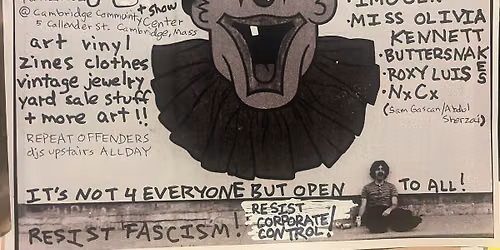 + show
@ Cambridge Community Center
5 Callender St. Cambridge, Mass
art vinyl
zines clothes
vintage jewelry
yard sale stuff
+ more art !!
REPEAT OFFENDERS
djs upstairs ALL DAY
• MISS OLIVIA
KENNETT
• BUTTERSNAKES
• ROXY LUIS
• NxCx
(Sam Gascan/Abdul
Sherzai)
IT'S NOT 4 EVERYONE BUT OPEN TO ALL!
RESIST FASCISM!
RESIST
CORPORATE
CONTROL!